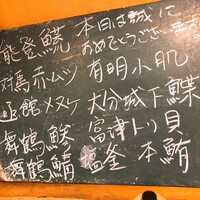 本日は誠に
おめでとうございます
能登鰤
対馬赤ムツ
函館メヌケ
舞鶴鰺
舞鶴鯖
有明小肌
大分城下鰈
富津トリ貝
塩釜本鮪